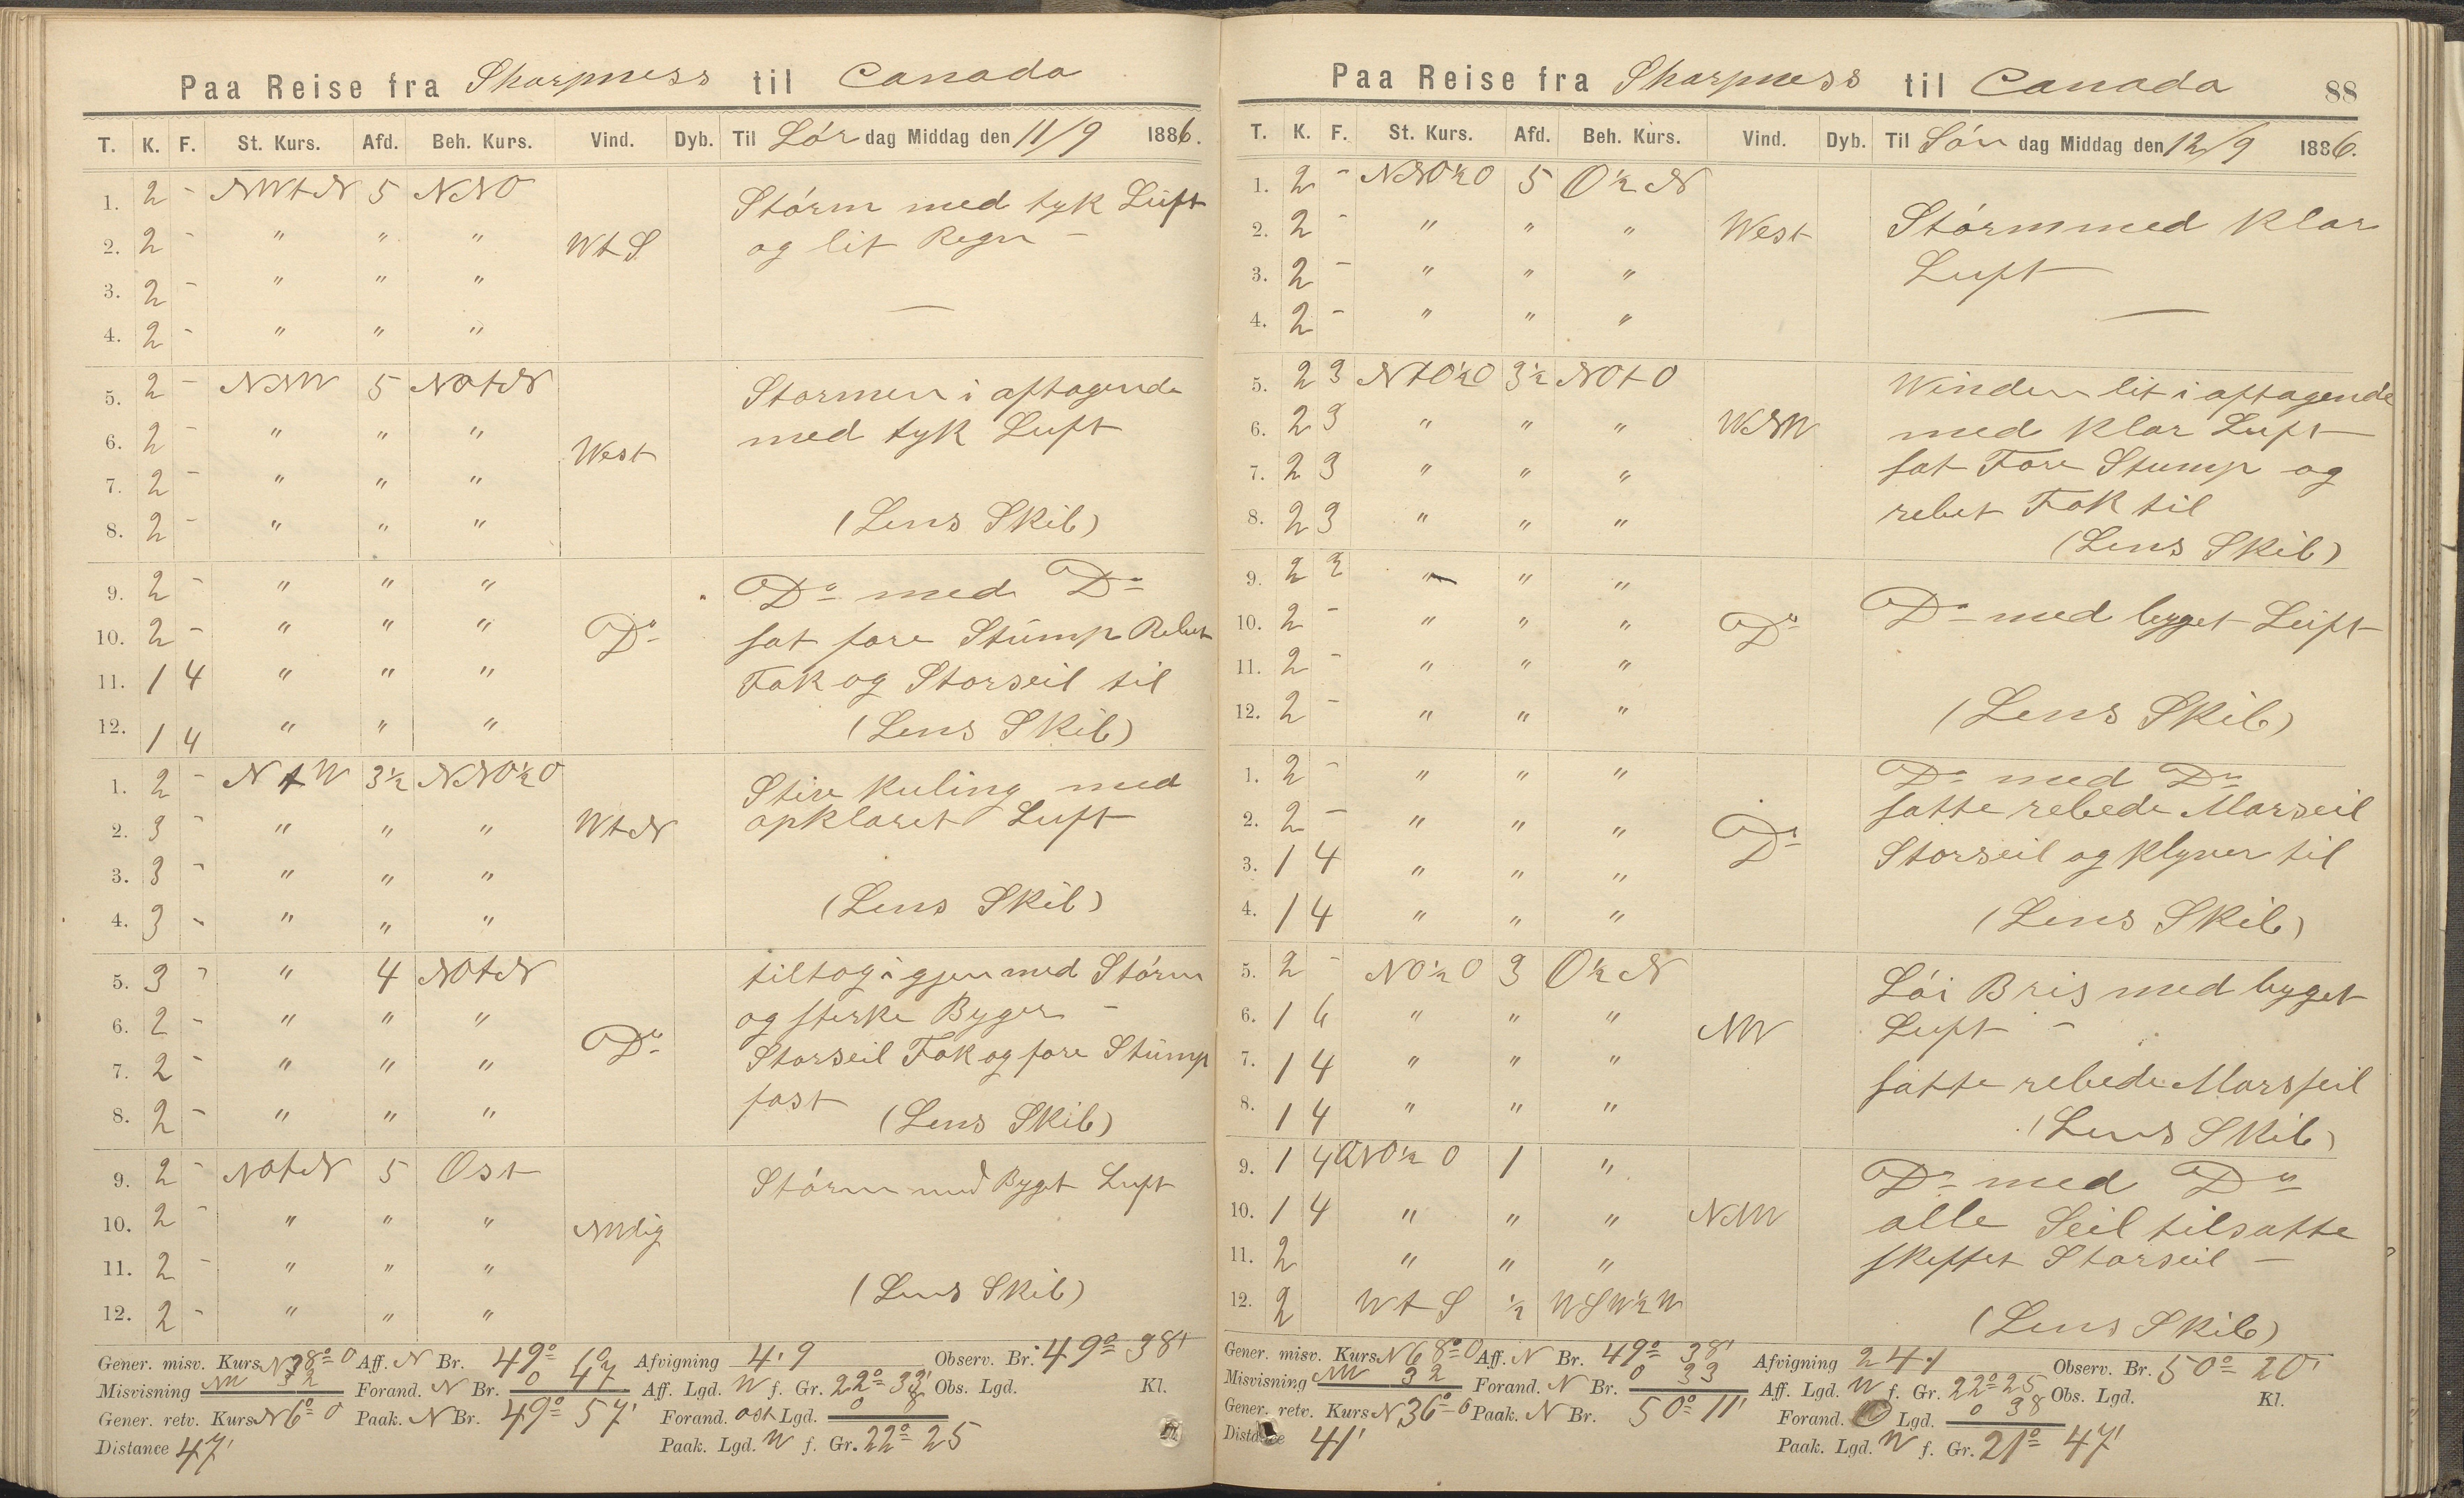 Paa Reise fra Sharpness til Canada
T. K. F. St. Kurs. Afd. Beh. Kurs. Vind. Dyb. Til Lör dag Middag den 11/9 1886.
1. 2 - NWtN 5 NNO Störm med tyk Luft
2. 2 - " " " WtS og lit Regn -
3. 2 - " " "
4. 2 - " " "
5. 2 - NNW 5 NOtN Stormen i aftagende
6. 2 - " " " med tyk Luft
7. 2 - " " " West
8. 2 - " " " (Lens Skib)
9. 2 - " " " Do med Do
10. 2 - " " " Do sat fore Stump Rebet
11. 1 4 " " " Fok og Storseil til
12. 1 4 " " " (Lens Skib)
1. 2 - NtW 3½ NNO½O Stiv Kuling med
2. 3 - " " " WtN opklaret Luft
3. 3 - " " "
4. 3 - " " " (Lens Skib)
5. 3 - " 4 NOtN tiltog igjen med Störm
6. 2 - " " " Do og sterke Byger -
7. 2 - " " " Storseil Fok og fore Stump
8. 2 - " " " fast (Lens Skib)
9. 2 - NOtN 5 Ost Störm med Byget Luft
10. 2 - " " " NWlig
11. 2 - " " "
12. 2 - " " " (Lens Skib)
Gener. misv. Kurs N38°O Aff. N Br. 49° 10 Afvigning 4.9 Observ. Br. 49° 38'
Misvisning NW 32 Forand. N Br. 0 47 Aff. Lgd. W f. Gr. 22° 33' Obs. Lgd. Kl.
Gener. retv. Kurs N6°O Paak. N Br. 49° 57' Forand. ost Lgd. 0 8
Distance 47' Paak. Lgd. W f. Gr. 22° 25
Paa Reise fra Sharpness til Canada 88
T. K. F. St. Kurs. Afd. Beh. Kurs. Vind. Dyb. Til Sön dag Middag den 12/9 1886.
1. 2 - NNO½O 5 O½N
2. 2 - " " " West Störm med klar
3. 2 - " " " Luft
4. 2 - " " "
5. 2 3 NtO½O 3½ NOtO Winden lit i aftagende
6. 2 3 " " " WNW med klar Luft
7. 2 3 " " " sat Fore Stump og
8. 2 3 " " " rebet Fok til
(Lens Skib)
9. 2 2 " " "
10. 2 - " " " Do Do med byget Luft
11. 2 - " " "
12. 2 - " " " (Lens Skib)
1. 2 - " " " Do med Do
2. 2 - " " " Do satte rebede Marseil
3. 1 4 " " " Storseil og Klyver til
4. 1 4 " " " (Lens Skib)
5. 2 - NO½O 3 O½N Löi Bris med byget
6. 1 6 " " " NW Luft -
7. 1 4 " " " satte rebede Marsseil
8. 1 4 " " " (Lens Skib)
9. 1 4 ONO½O 1 " Do med Do
10. 1 4 " " " NNW alle Seil tilsatte
11. 2 " " " skiftet Storseil -
12. 2 WtS ½ WSW½W (Lens Skib)
Gener. misv. Kurs N68°O Aff. N Br. 49° 38' Afvigning 24.1 Observ. Br. 50° 20'
Misvisning NW 32 Forand. N Br. 0 33 Aff. Lgd. W f. Gr. 22° 25 Obs. Lgd. Kl.
Gener. retv. Kurs N36°O Paak. N Br. 50° 11' Forand. O Lgd. 0 38
Distance 41' Paak. Lgd. W f. Gr. 21° 47'